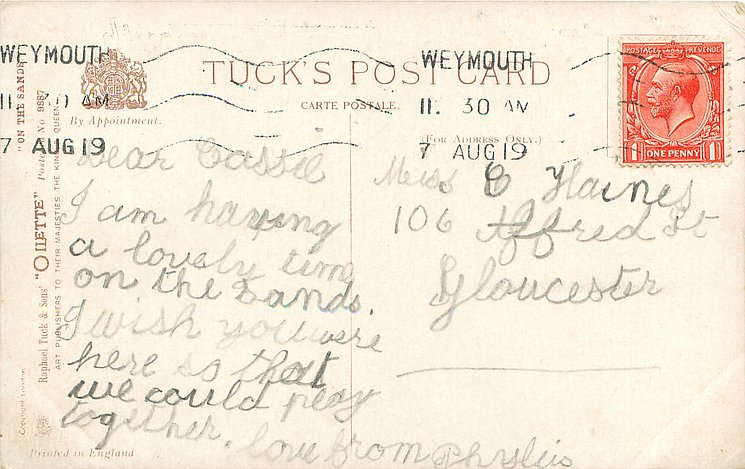 WEYMOUTH
11. 30 AM
7 AUG 19
WEYMOUTH
11. 30 AM
7 AUG 19
TUCK'S POST CARD
CARTE POSTALE.
By Appointment.
(FOR ADDRESS ONLY.)
POSTAGE REVENUE
1 ONE PENNY 1
"ON THE SANDS"
Raphael Tuck & Sons' "OILETTE" Postcard No 9887
ART PUBLISHERS TO THEIR MAJESTIES THE KING & QUEEN.
Copyright London
Printed in England.
Dear Cassie
I am having
a lovely time
on the sands.
I wish you were
here so that
we could play
together. love from Phyllis
Miss C Haines
106 Alfred St
Gloucester